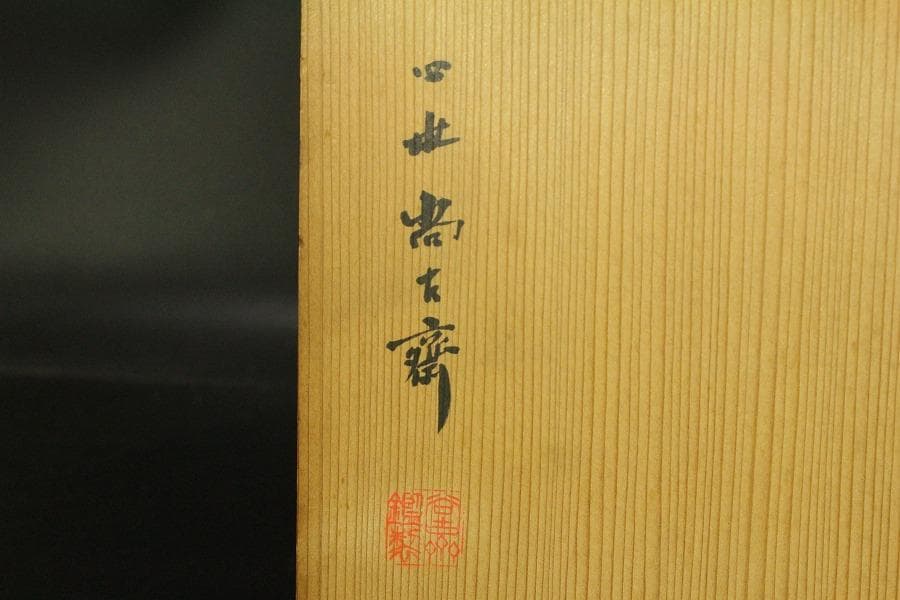 四世尚古齋